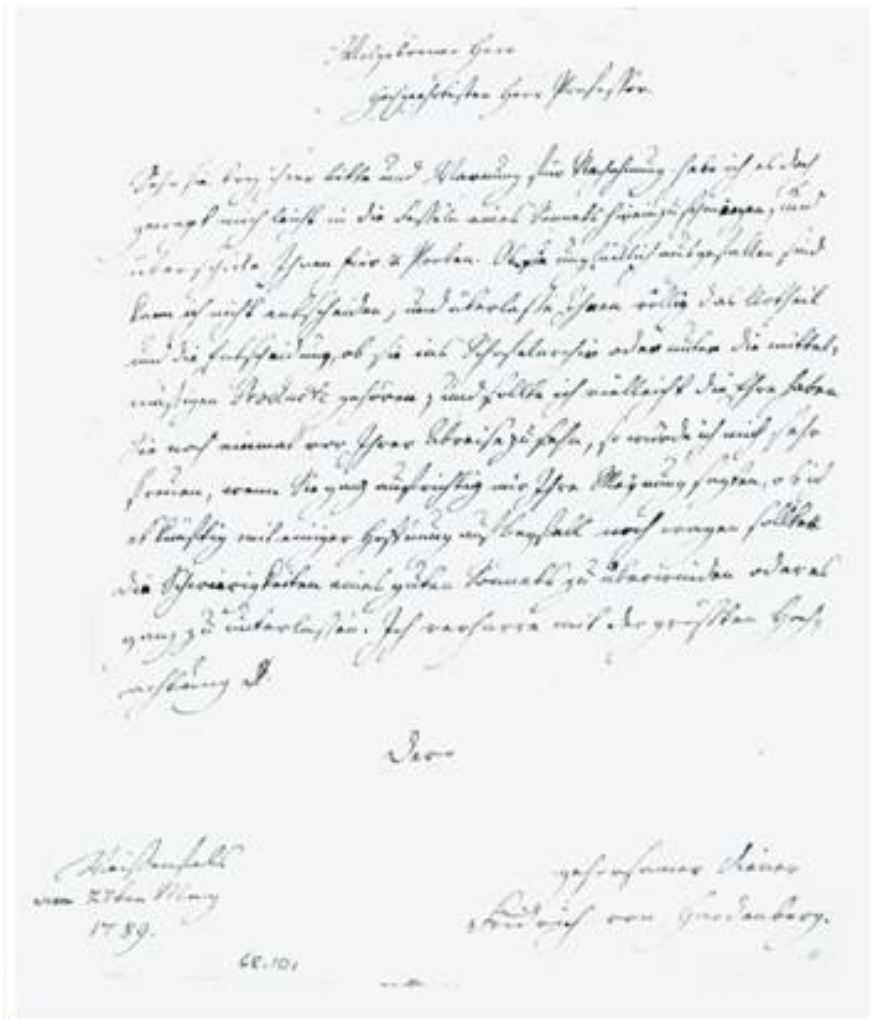 Herr
Herr Professor
Bitte und Warnung für Nachahmung habe ich es doch
gewagt mich leicht in die Fesseln eines Sonnets hineinzuschmiegen, und
überschicke Ihnen hier Proben. Ob sie unglücklich ausgefallen sind
kann ich nicht entscheiden, und überlasse Ihnen völlig das Urtheil
und die Entscheidung, ob sie ins Schofelarchiv oder unter die mittel-
mäßigen Produkte gehören, und sollte ich vielleicht die Ehre haben
Sie noch einmal vor Ihrer Abreise zu sehn, so würde ich mich sehr
freuen, wenn Sie ganz aufrichtig mir Ihre Meynung sagten, ob ich
es künftig mit einiger Hoffnung auf Beyfall noch wagen sollte
die Schwierigkeiten eines guten Sonnets zu überwinden oder es
ganz zu unterlassen. Ich verharre mit der größten Hoch-
achtung
Dero
Weißenfels
am 27ten May
1789.
gehorsamer Diener
Friedrich von Hardenberg.